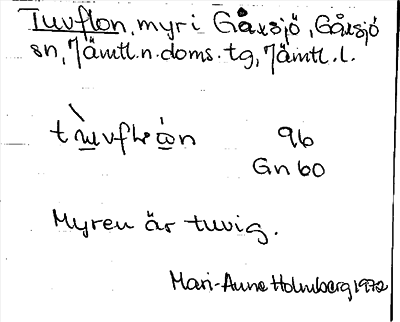 Tuvflon, myr i Gåxsjö, Gåxsjö
sn, Jämtl. n. doms. tg, Jämtl. l.
9b
Gn 60
Myren är tuvig.
Mari-Anne Holmberg 1972